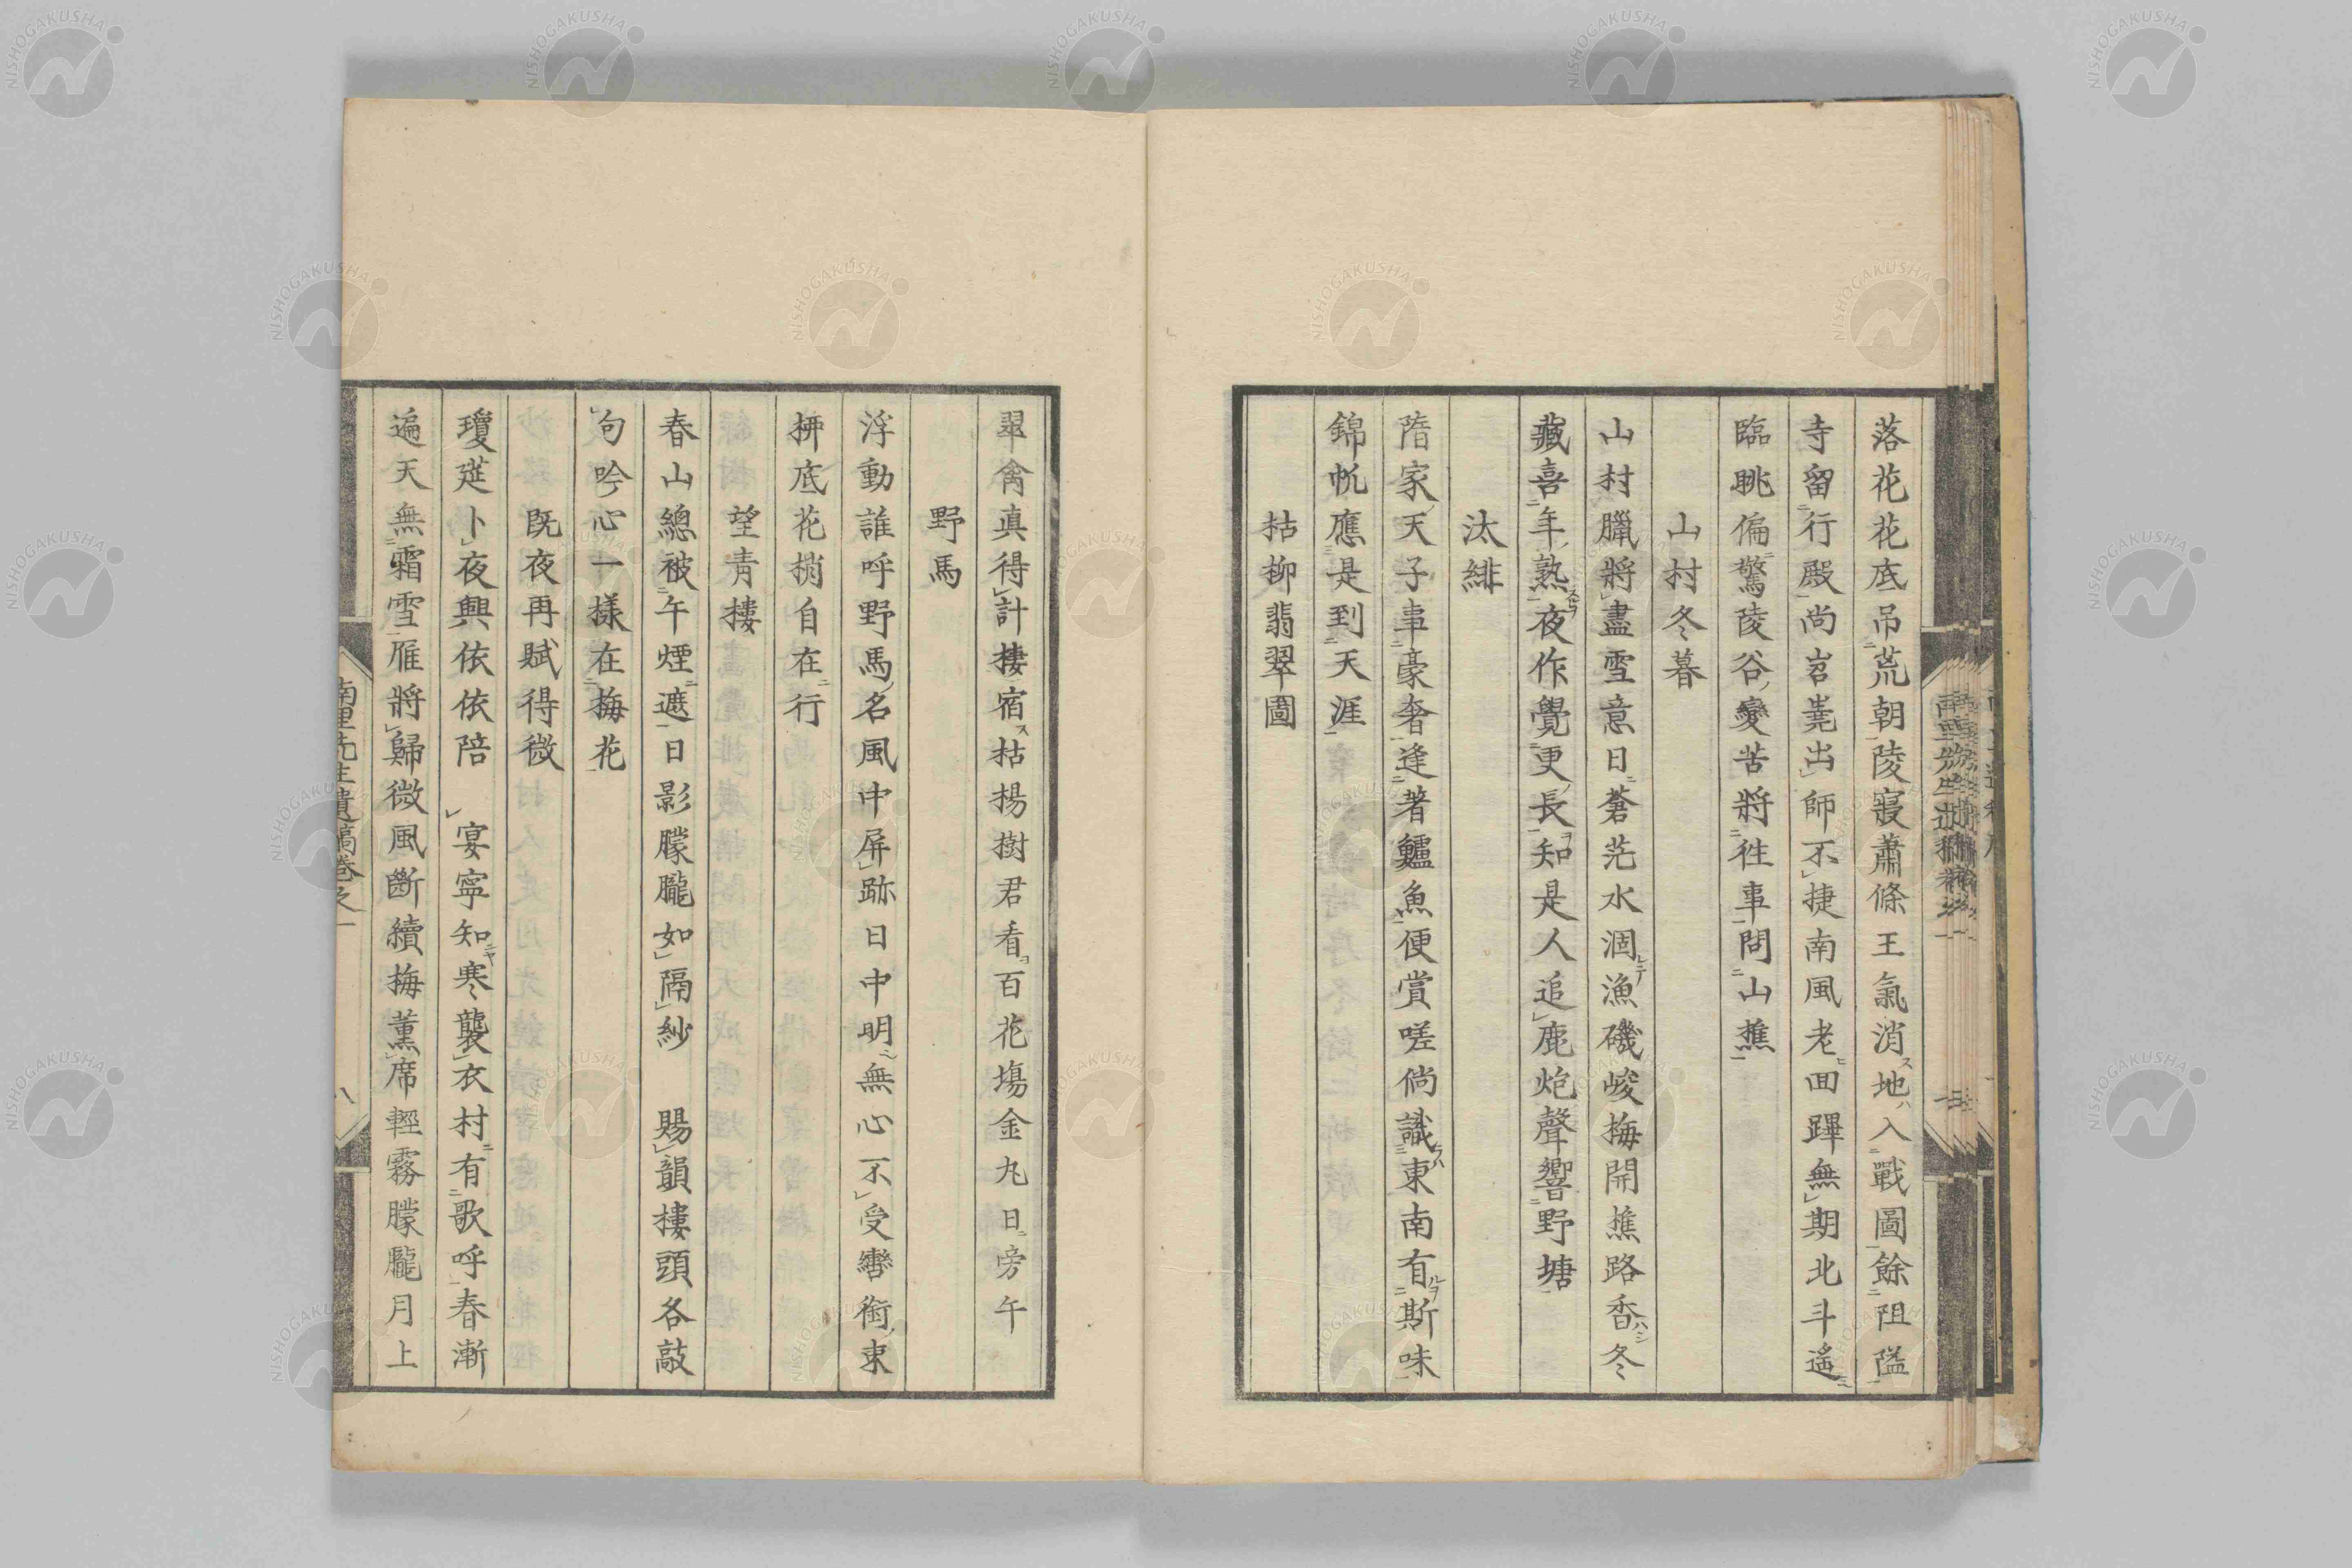 落花花底吊荒朝陵寢蕭條王氣消地入戰圖餘阻隘
寺留行殿尚岧嶤出師不捷南風老回蹕無期北斗遙
臨眺偏驚陵谷變苦將徃事問山樵
山村冬暮
山村臘將盡雪意日蒼茫水涸漁磯峻梅開樵路香冬
藏喜年熟夜作覺更長知是人追鹿炮聲響野塘
汰緋
隋家天子事豪奢逢著鱸魚便賞嗟倘識東南有斯味
錦帆應是到天涯
枯柳翡翠圖
翠禽真得計棲宿枯楊樹君看百花塲金丸日旁午
野馬
浮動誰呼野馬名風中屏跡日中明無心不受轡銜束
拼底花梢自在行
望青樓
春山總被午煙遮日影朦朧如隔紗 賜韻樓頭各敲
句吟心一樣在梅花
既夜再賦得微
瓊莚卜夜興依依陪 宴寧知寒襲衣村有歌呼春漸
遍天無霜雪雁將歸微風斷續梅薫席輕霧朦朧月上
南里先生遺稿卷之一
八
NISHOGAKUSHA